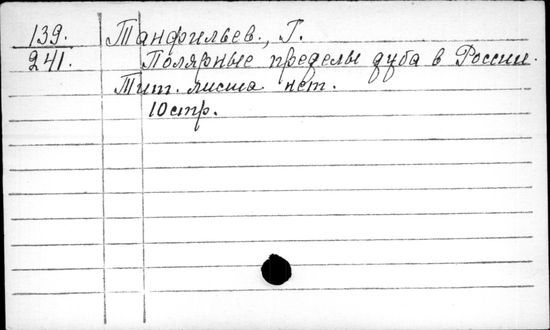 139. Танфильев., Г.
241. Полярные пределы дуба в России.
Тит. листа нет.
10 стр.